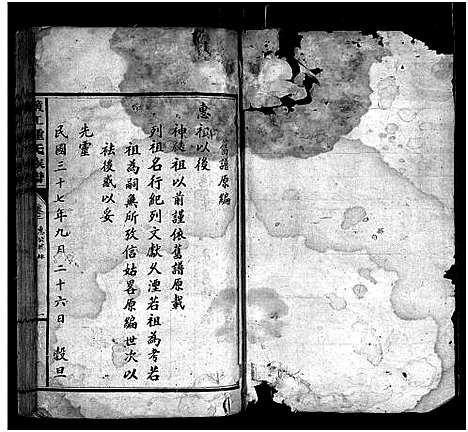 舊譜原編
惠祖以後
神廷祖以前謹依舊譜原載
列祖名行紀列文獻久湮若祖為考若
祖為嗣無所攷信姑畧原編世次以
祛後惑以妥
先靈
民國三十七年九月二十六日 穀旦